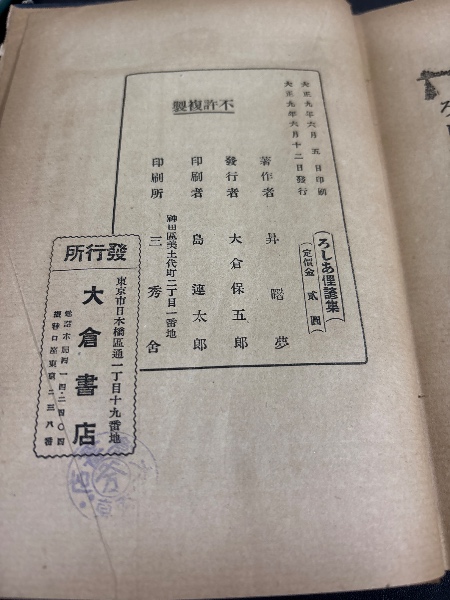 大正九年六月五日印刷
大正九年六月十二日發行
ろしあ俚諺集
定價金貳圓
不許複製
著作者 昇曙夢
發行者 大倉保五郎
印刷者 島連太郎
神田區美土代町二丁目一番地
印刷所 三秀舍
發行所
東京市日本橋區通一丁目十九番地
大倉書店